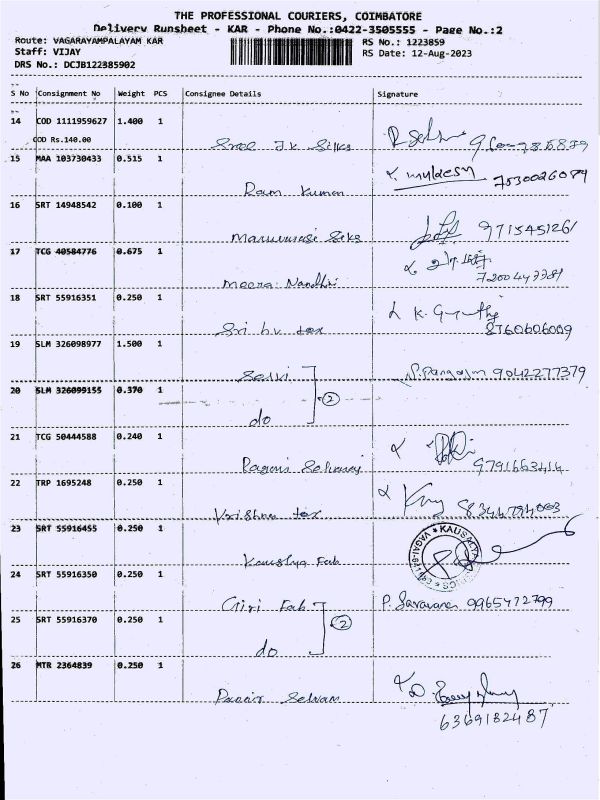 THE PROFESSIONAL COURIERS, COIMBATORE
Delivery Runsheet - KAR - Phone No.:0422-3505555 - Page No.:2
Route: VAGARAYAMPALAYAM KAR RS No.: 1223859
Staff: VIJAY RS Date: 12-Aug-2023
DRS No.: DCJB122385902
S No Consignment No Weight PCS Consignee Details Signature
14 COD 1111959627 1.400 1
COD Rs.140.00 Sree J.K Silks
15 MAA 103730433 0.515 1
Ram Kumar 7530026079
16 SRT 14948542 0.100 1
Silks 9715451261
17 TCG 40584776 0.675 1
Meera Nandhini
18 SRT 55916351 0.250 1
Sri tex 8760606009
19 SLM 326098977 1.500 1
Selvi 9042277379
20 SLM 326099155 0.370 1
do 2
21 TCG 50444588 0.240 1
9791663414
22 TRP 1695248 0.250 1
Krishna tex
23 SRT 55916455 0.250 1
Kauslya Fab
24 SRT 55916350 0.250 1
Giri Fab P. Saravanan 9965472799
25 SRT 55916370 0.250 1
do 2
26 MTR 2364839 0.250 1
Selvam
6369182487